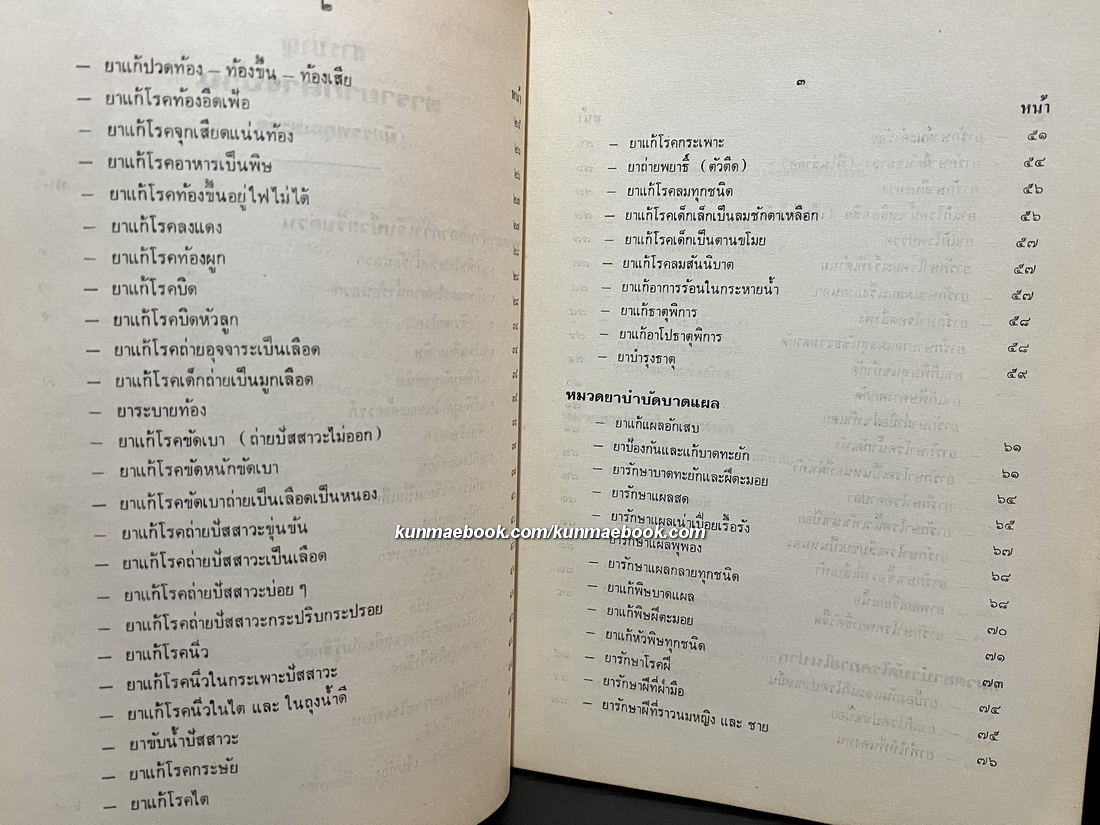 ๒
หน้า
— ยาแก้ปวดท้อง – ท้องขึ้น – ท้องเสีย
— ยาแก้โรคท้องอืดเฟ้อ
— ยาแก้โรคจุกเสียดแน่นท้อง
— ยาแก้โรคอาหารเป็นพิษ
— ยาแก้โรคท้องขึ้นอยู่ไฟไม่ได้
— ยาแก้โรคลงแดง
— ยาแก้โรคท้องผูก
— ยาแก้โรคบิด
— ยาแก้โรคบิดหัวลูก
— ยาแก้โรคถ่ายอุจจาระเป็นเลือด
— ยาแก้โรคเด็กถ่ายเป็นมูกเลือด
— ยาระบายท้อง
— ยาแก้โรคขัดเบา (ถ่ายปัสสาวะไม่ออก)
— ยาแก้โรคขัดหนักขัดเบา
— ยาแก้โรคขัดเบาถ่ายเป็นเลือดเป็นหนอง
— ยาแก้โรคถ่ายปัสสาวะขุ่นข้น
— ยาแก้โรคถ่ายปัสสาวะเป็นเลือด
— ยาแก้โรคถ่ายปัสสาวะบ่อย ๆ
— ยาแก้โรคถ่ายปัสสาวะกระปริบกระปรอย
— ยาแก้โรคนิ่ว
— ยาแก้โรคนิ่วในกระเพาะปัสสาวะ
— ยาแก้โรคนิ่วในไต และ ในถุงน้ำดี
— ยาขับน้ำปัสสาวะ
— ยาแก้โรคกระษัย
— ยาแก้โรคไต
๓
หน้า
— ยาแก้โรคกระเพาะ ๕๑
— ยาถ่ายพยาธิ์ (ตัวตืด) ๕๔
— ยาแก้โรคลมทุกชนิด ๕๖
— ยาแก้โรคเด็กเล็กเป็นลมชักตาเหลือก ๕๖
— ยาแก้โรคเด็กเป็นตานขโมย ๕๗
— ยาแก้โรคลมสันนิบาต ๕๗
— ยาแก้อาการร้อนในกระหายน้ำ ๕๗
— ยาแก้ธาตุพิการ ๕๘
— ยาแก้อาโปธาตุพิการ ๕๘
— ยาบำรุงธาตุ ๕๙
หมวดยาบำบัดบาดแผล
— ยาแก้แผลอักเสบ ๖๑
— ยาป้องกันและแก้บาดทะยัก ๖๑
— ยารักษาบาดทะยักและฝีตะมอย ๖๔
— ยารักษาแผลสด ๖๕
— ยารักษาแผลเน่าเปื่อยเรื้อรัง ๖๗
— ยารักษาแผลพุพอง ๖๘
— ยารักษาแผลกลายทุกชนิด ๖๘
— ยาแก้พิษบาดแผล ๗๐
— ยาแก้พิษฝีตะมอย ๗๑
— ยาแก้หัวพิษทุกชนิด ๗๓
— ยารักษาโรคฝี ๗๔
— ยารักษาฝีที่ฝ่ามือ ๗๕
— ยารักษาฝีที่ราวนมหญิง และ ชาย ๗๖
kunmaebook.com/kunmaebook.com